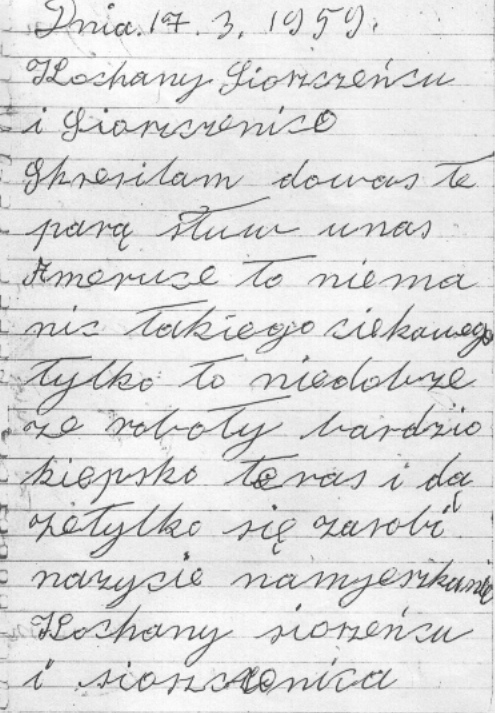 Dnia. 17. 3. 1959.
Kochany Siorzczeńcu
i Siorzczenico
Skresilam dowas te
parą słuw unas
Ameryce to niema
nic takiego ciekawego
tylko to niedobrze
ze roboty bardzio
kiepsko teras i dą
zetylko się zarobi
nazycie namyeszkanie
Kochany siorzeńcu
i siorzczenica